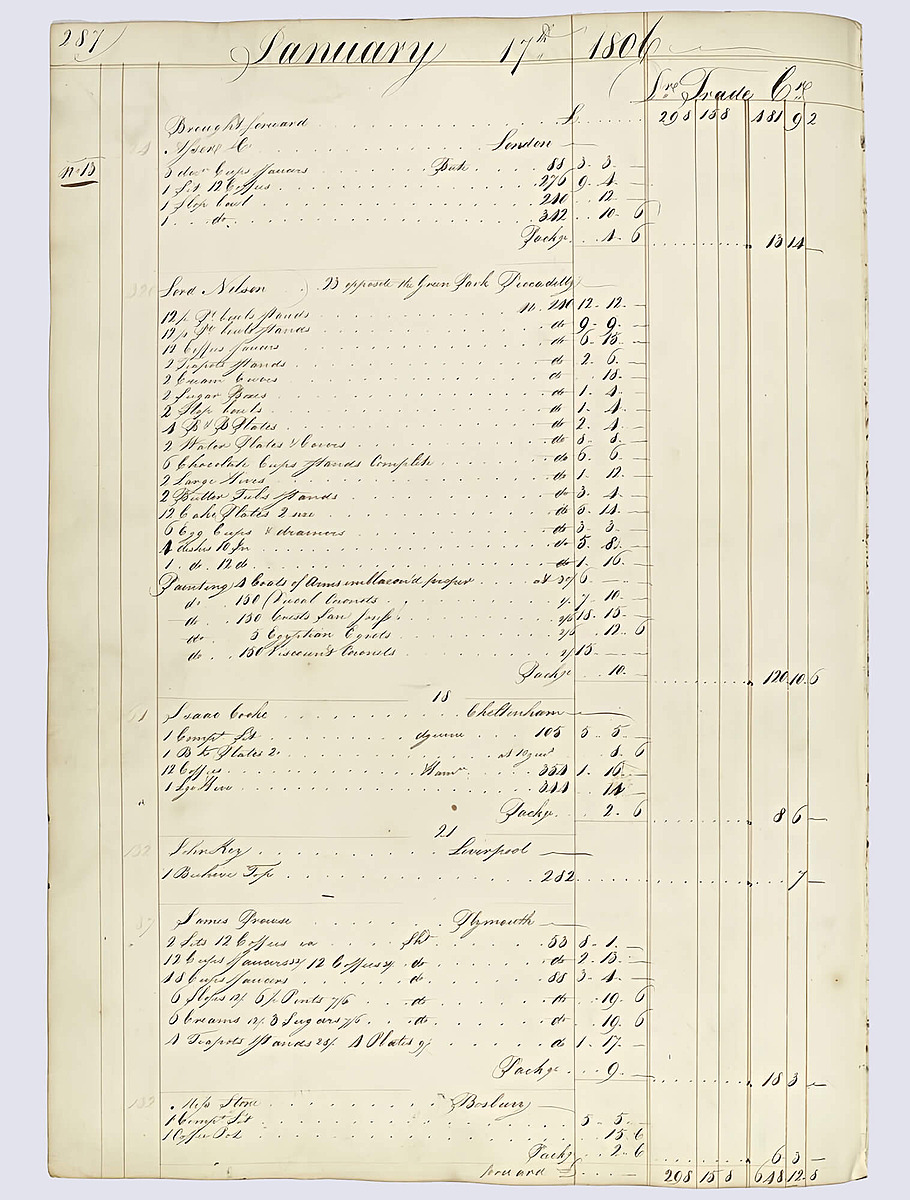 287 January 17th 1806
Dre Trade Cre
Brought forward £ 298 15 8 481 9 2
London
No 13
3 doz Cups Saucers 88 3 3 —
1 Set 12 Coffees 276 9 4 —
1 Slop bowl 240 12 —
1 do 342 10 6
Packge 4 6 13 14 —
Lord Nelson 23 opposite the Green Park Piccadilly
12 bowls stands no. 240 12 12 —
12 bowls stands do 9 9 —
12 Coffees Saucers do 6 15 —
2 Teapots Stands do 2 6 —
2 Cream Ewers do 18 —
2 Sugar Boxes do 1 4 —
2 Slop bowls do 1 4 —
4 B & B Plates do 2 4 —
2 Water Plates & Covers do 8 8 —
6 Chocolate Cups Stands Complete do 6 6 —
2 Large Hives do 1 12 —
2 Butter Tubs Stands do 3 4 —
12 Cake Plates 2 size do 14 —
6 Egg Cups & drainers do 3 3 —
4 dishes 10 In do 5 8 —
1 do 12 do do 1 16 —
Painting 4 Coats of Arms proper at 30/ 6 —
do 150 Ducal Coronets 1/ 7 10 —
do 150 Crests San Josef 2/6 18 15 —
do 5 Egyptian Egrets 2/6 12 6
do 150 Viscount Coronets 2/ 15 —
Packge 10 — 120 10 6
18
61 Isaac Cooke Cheltenham
1 Compt Set 105 5 5 —
1 B Plates 2 8 6
12 Coffees 354 1 16 —
1 Lge Hive 344 14 —
Packge 2 6 8 6 —
21
132 John Key Liverpool
1 Beehive Top 282 7 —
87 James Prowse Plymouth
2 Sets 12 Coffees 53 8 1 —
12 Cups Saucers 12 Coffees do do 2 13 —
48 Cups Saucers do 88 3 4 —
6 Slops 12/ 6 Pints 7/6 do do 19 6
6 Creams 12/ 3 Sugars 7/6 do do 19 6
4 Teapots Stands 28/ 4 Plates 9/ do 1 17 —
Packge 9 — 18 3 —
132 Miss Stone Bosbury
1 Compt Set 5 5 —
1 Coffee Pot 15 6
Packg 2 6 6 3 —
forward £ 298 15 8 648 12 8